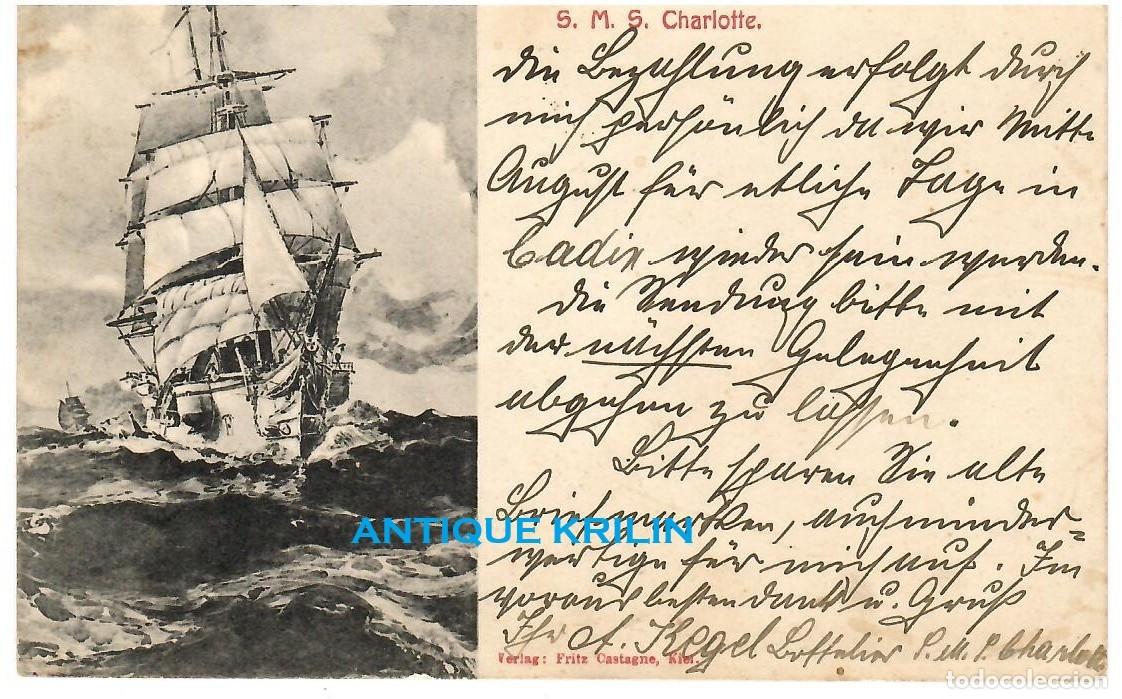 S. M. S. Charlotte.
die Bezahlung erfolgt durch
mich persönlich da wir Mitte
August für etliche Tage in
Cadix wieder sein werden.
Die Sendung bitte mit
der nächsten Gelegenheit
abgehen zu lassen.
Bitte sparen Sie alte
Briefmarken, auch minder=
wertige für mich auf. Im
voraus besten Dank u. Gruß
Ihr A. Kegel Bottelier S. M. S. Charlotte
Verlag: Fritz Castagne, Kiel.
ANTIQUE KRILIN
todocoleccion